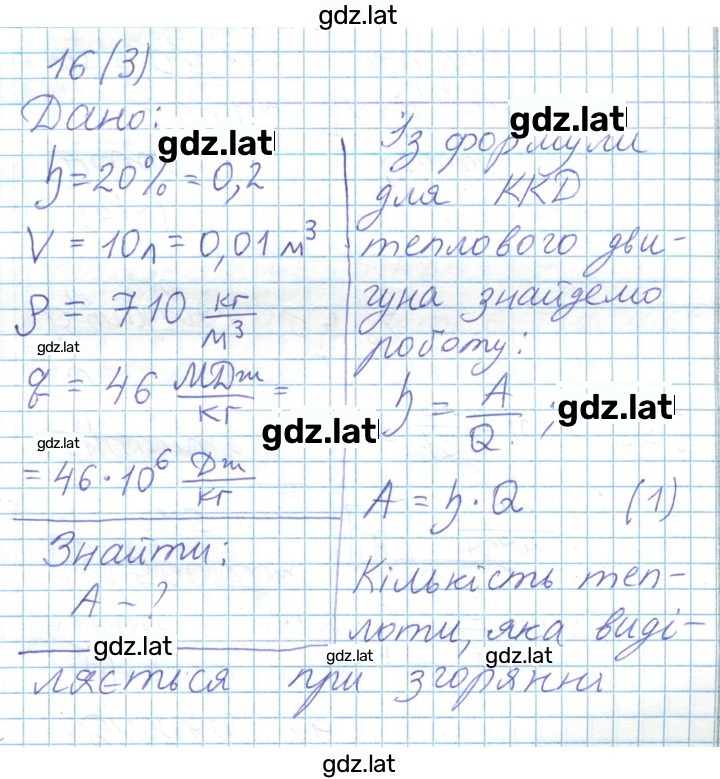 gdz.lat
16 (3)
Дано:
gdz.lat
η = 20% = 0,2
V = 10 л = 0,01 м³
ρ = 710 кг/м³
gdz.lat
q = 46 МДж/кг =
gdz.lat
gdz.lat
= 46 · 10⁶ Дж/кг
Знайти:
A - ?
gdz.lat
gdz.lat
Із формули
для ККД
теплового дви-
гуна знайдемо
роботу:
η = A/Q ;
gdz.lat
A = η · Q (1)
Кількість теп-
лоти, яка виді-
gdz.lat
gdz.lat
ляється при згорянні
gdz.lat